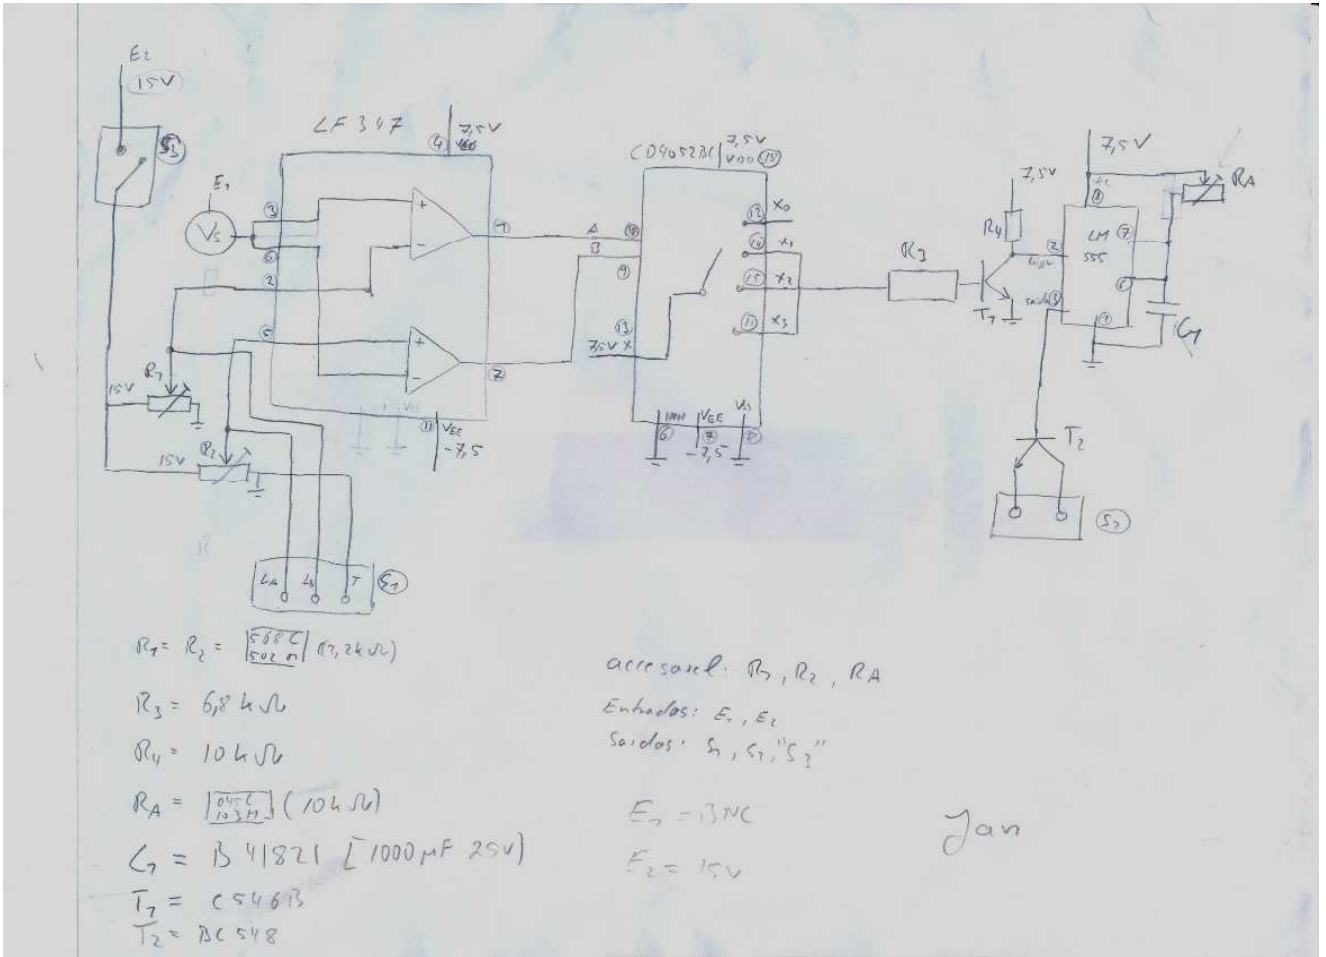 E2
15V
S3
LF 347
7,5V
4
E1
VS
3
6
2
5
1
7
11
VEE
-7,5
R1
15V
R2
15V
LA
LB
T
S1
CD4052BC
7,5V
VDD
A
B
10
9
13
7,5V X
12
X0
14
X1
15
X2
11
X3
6
INH
VEE
7
-7,5
R3
T1
7,5V
R4
7,5V
8
RA
LM
555
2
7
6
3
1
C1
T2
S2
R1 = R2 = 568C
502M
R3 = 6,8 kΩ
R4 = 10 kΩ
RA = 103M (10kΩ)
C1 = B 41821 [1000µF 25V)
T1 = C546B
T2 = BC 548
R1, R2, RA
Entradas: E1, E2
Saidas: S1, S2, "S3"
E1 = BNC
E2 = 15V
Jan